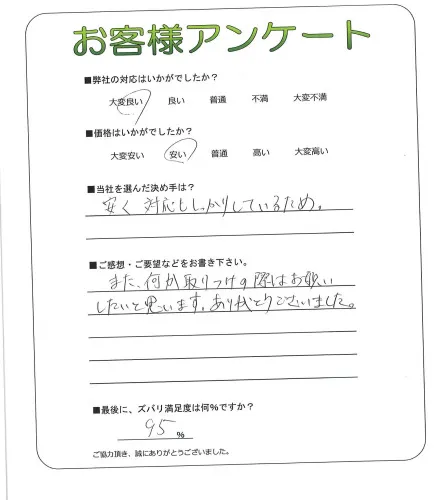 お客様アンケート
■弊社の対応はいかがでしたか？
大変良い 良い 普通 不満 大変不満
■価格はいかがでしたか？
大変安い 安い 普通 高い 大変高い
■当社を選んだ決め手は？
安く 対応もしっかりしているため。
■ご感想・ご要望などをお書き下さい。
また、何か取りつけの際はお願い
したいと思います。ありがとうございました。
■最後に、ズバリ満足度は何％ですか？
95 ％
ご協力頂き、誠にありがとうございました。